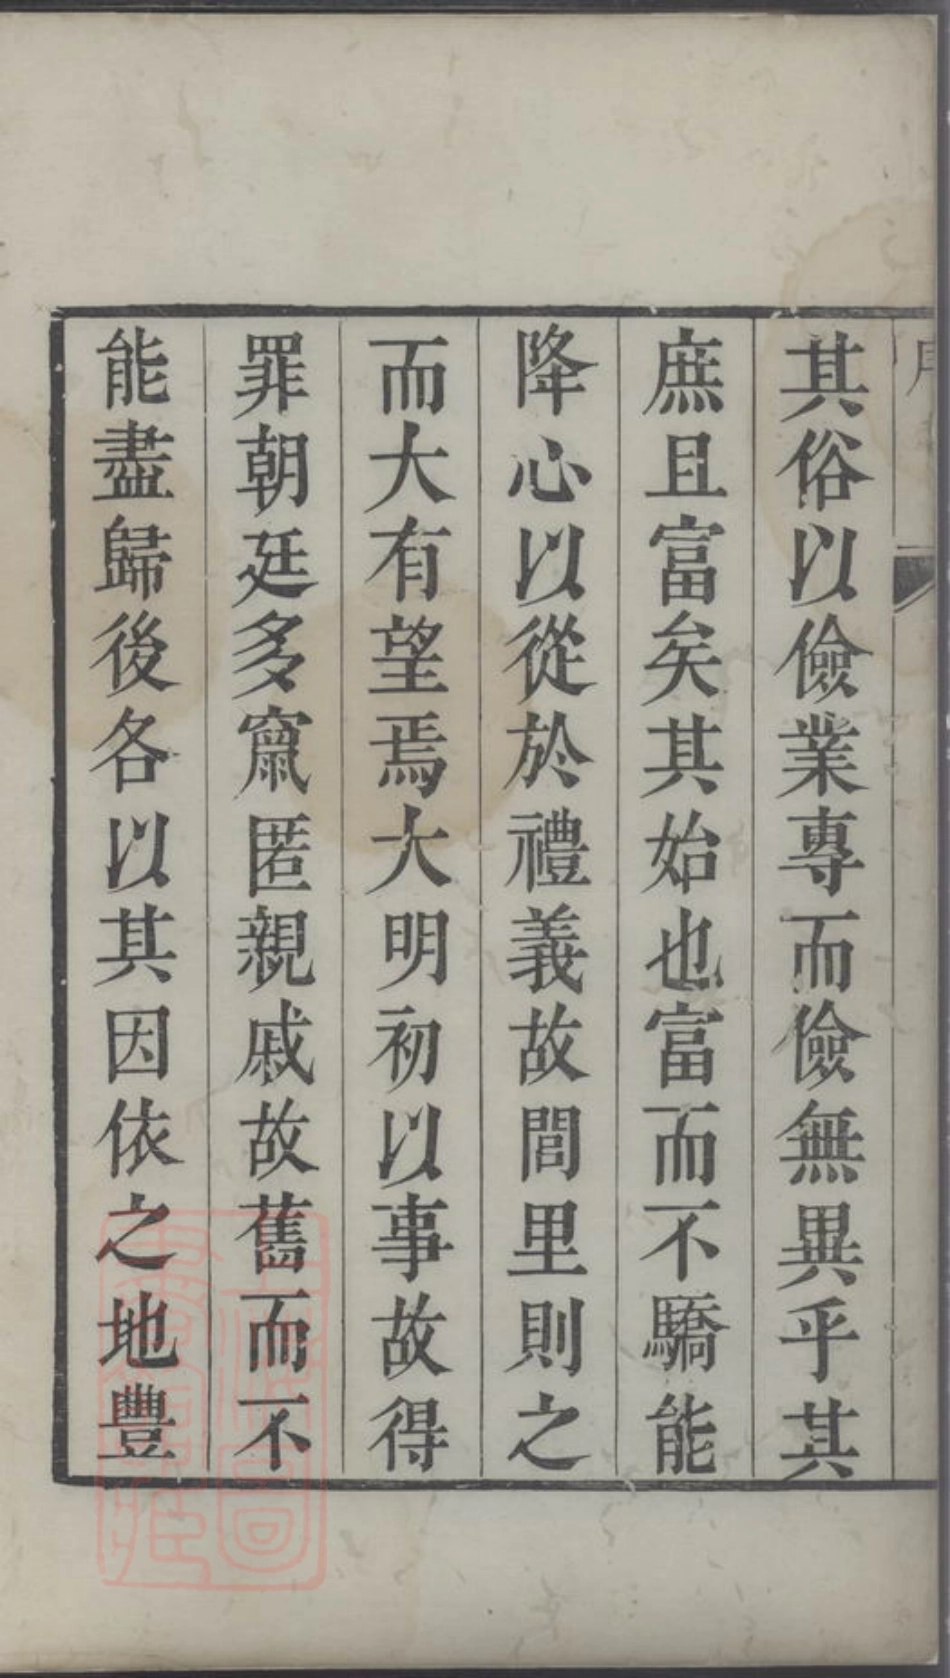 其俗以儉業專而儉無異乎其
庶且富矣其始也富而不驕能
降心以從於禮義故閭里則之
而大有望焉大明初以事故得
罪朝廷多竄匿親戚故舊而不
能盡歸後各以其因依之地豐